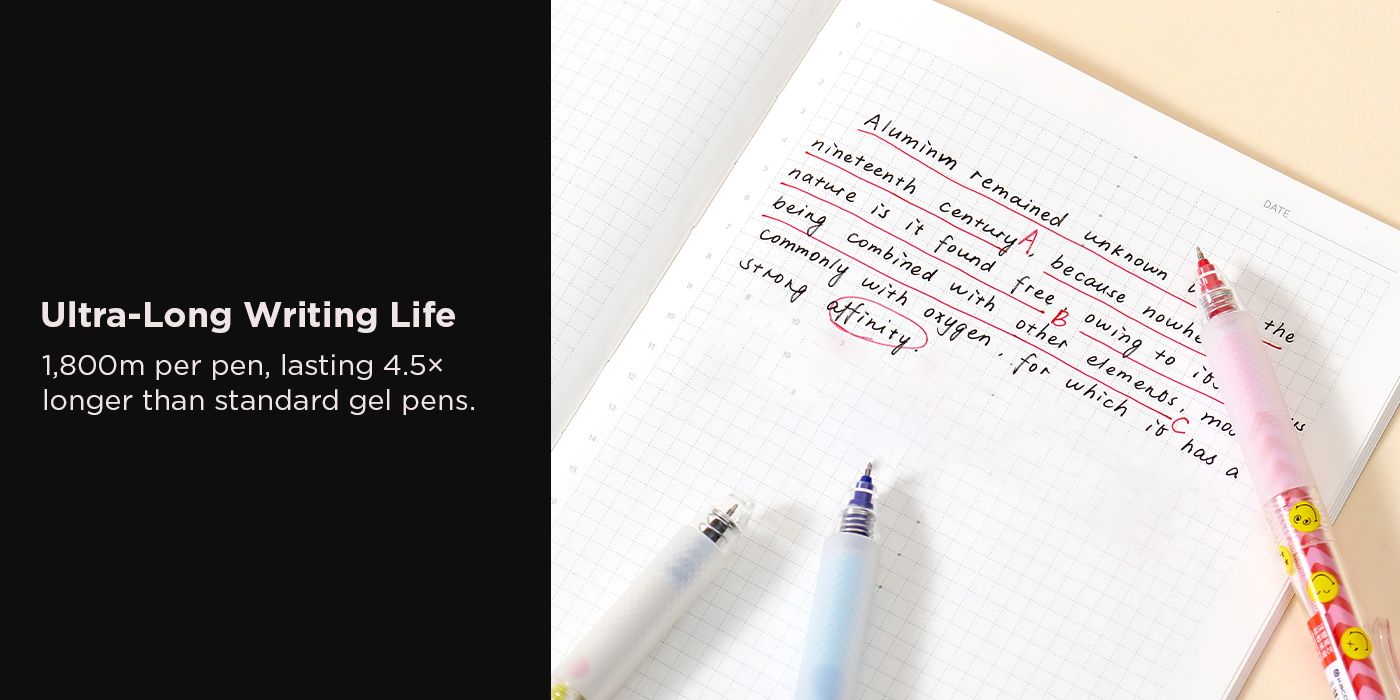 Ultra-Long Writing Life
1,800m per pen, lasting 4.5×
longer than standard gel pens.
DATE
Aluminum remained unknown the
nineteenth century A, because nowhe
nature is it found free B owing to its
being combined with other elements, mo
commonly with oxygen, for which it C has a
strong affinity.
0
1
2
3
4
5
6
7
8
9
10
11
12
13
14
15